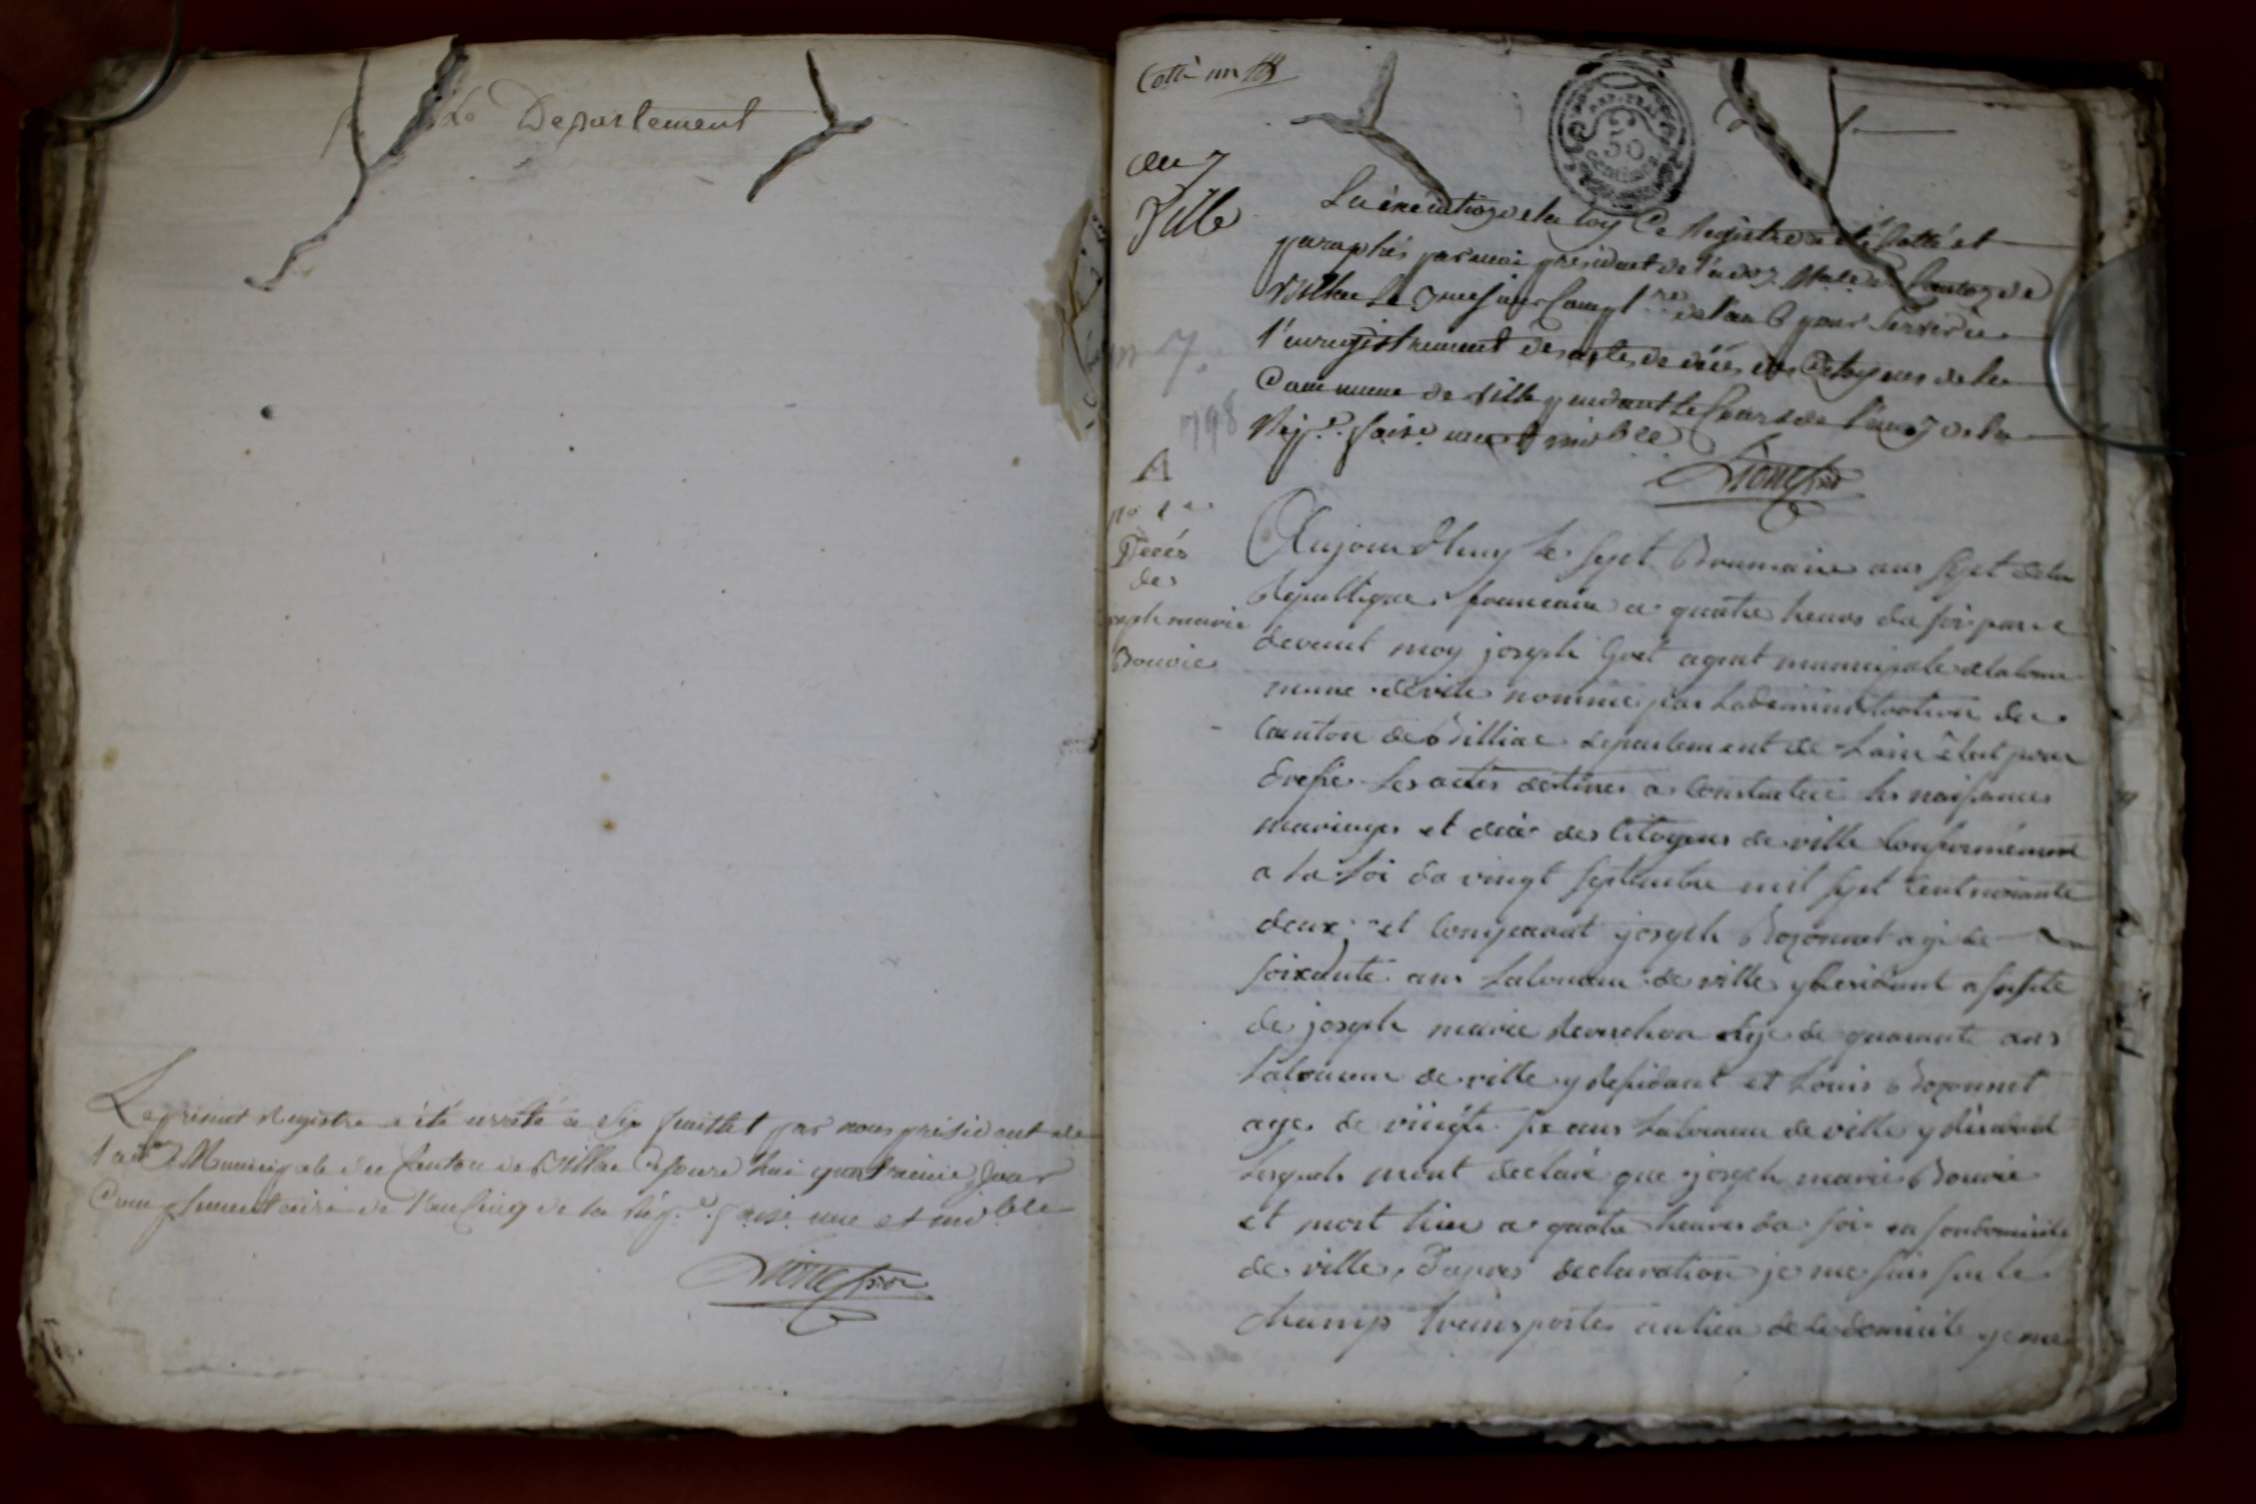 Le Departement
Le present Registre a été arrêté a Six feuillet par nous president de
l'adon Municipale du Canton de Villia jourd'hui quatrieme jour
Complementaire de l'an Cinq de la Rép.e f aise. une et indble
Cotté un
an 7
Ville
En éxécution de la loy Ce Registre a été Cotté et
paraphés par moi président de l'adon Male du Canton de
Le jour Compl.re de l'an 6 pour Servir a
l'enregistrement des actes de décès des Citoyens de la
Commune de Ville pendant le Cours de l'an 7 de la
Rép.e f aise une et indble
798
A
no 1er
Decés
de
oseph marie
Bouvie
Aujourdhuy le sept Brumaire ans sept de la
Republique francaise a quatre heures du soir par
devant moy joseph agent municipale de la com
mune de ville nommé par Ladministration du
Canton de Villiae departement de Lain élut pour
dresse les actes destines a Constatere les naisances
mariages et décé des Citoyens de ville Conformément
a la Loi du vingt septembre mil sept Cent nonante
deux et Comparant joseph Bozonnet agé de
soixante ans Laboureur de ville y Residant assisté
de joseph marie age de quarante ans
Laboureur de ville y Residant et Louis Bozonnet
age de vingte six ans Laboureur de ville y Residant
Lesquels mont declaré que joseph marie Bouvie
et mort hier a quatre heures du soir en son domicile
de ville, D'apres declaration je me suis sur le
champ transportes au lieu de le domicile je me